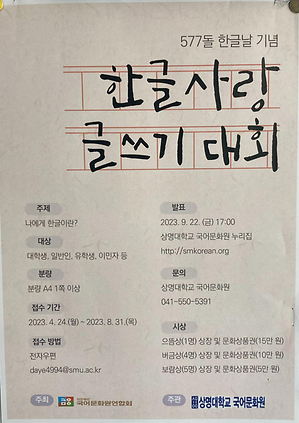 577돌 한글날 기념
한글사랑
글쓰기 대회
주제
나에게 한글이란?
대상
대학생, 일반인, 유학생, 이민자 등
분량
분량 A4 1쪽 이상
접수 기간
2023. 4. 24.(월) ~ 2023. 8. 31.(목)
접수 방법
전자우편
daye4994@smu.ac.kr
발표
2023. 9. 22. (금) 17:00
상명대학교 국어문화원 누리집
http://smkorean.org
문의
상명대학교 국어문화원
041-550-5391
시상
으뜸상(1명) 상장 및 문화상품권(15만 원)
버금상(4명) 상장 및 문화상품권(10만 원)
보람상(5명) 상장 및 문화상품권(5만 원)
주최
국어문화원연합회
주관
상명대학교 국어문화원